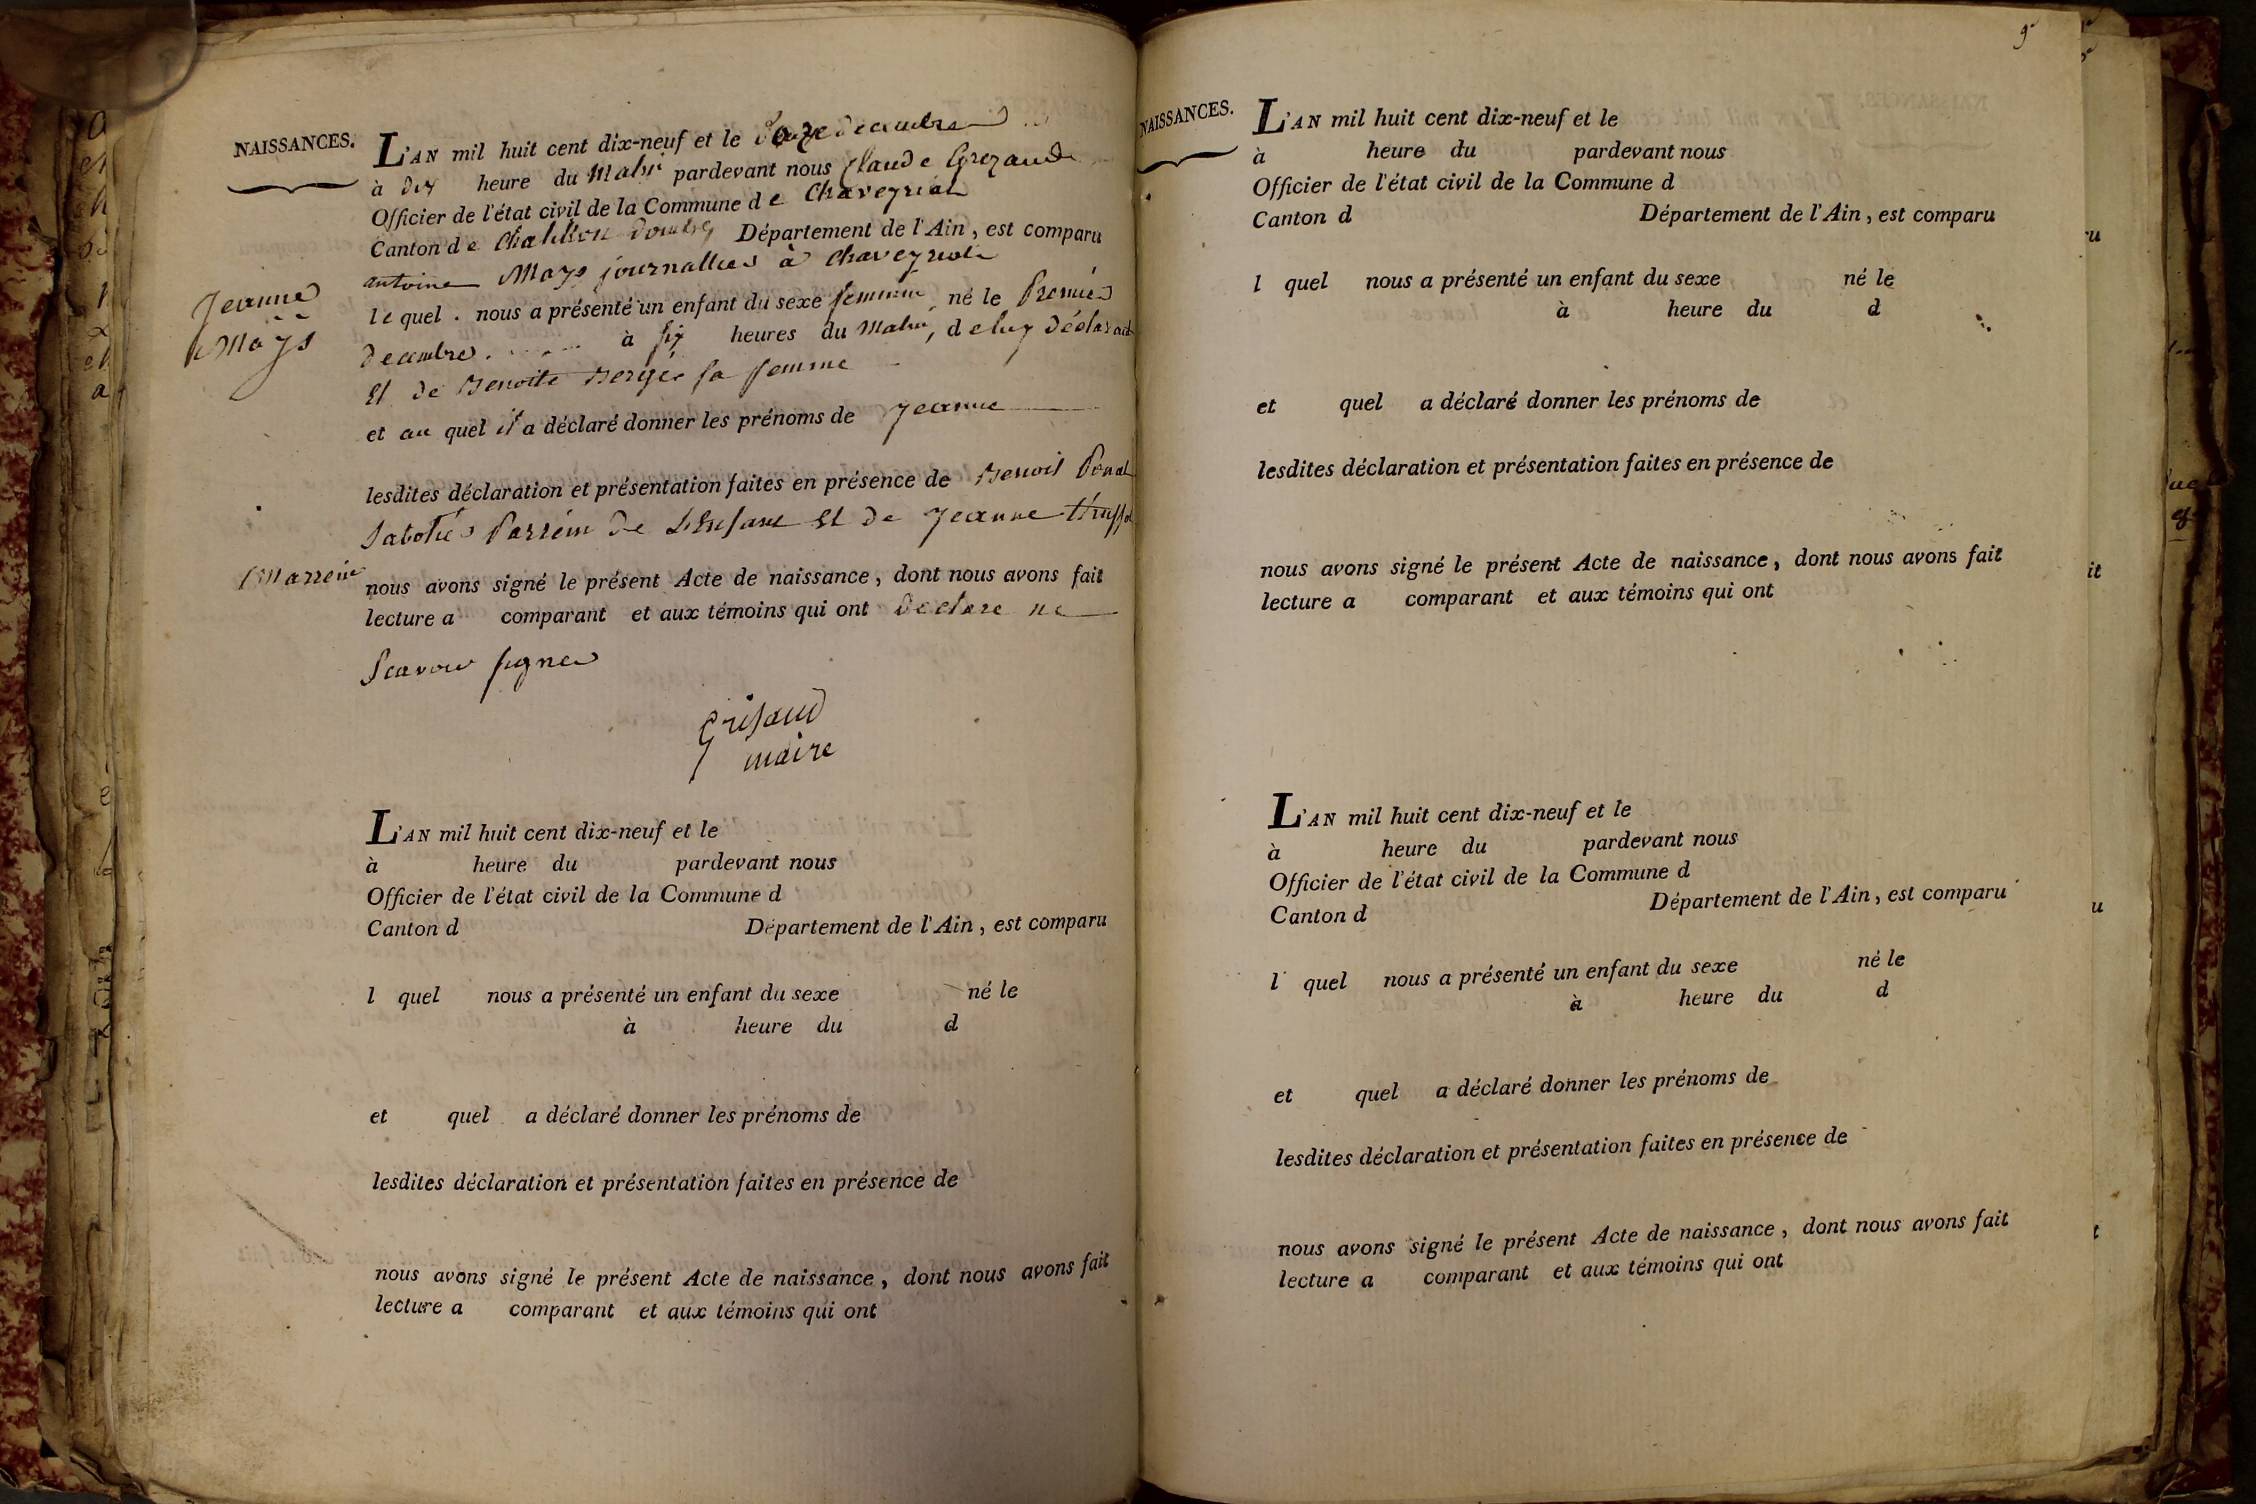 NAISSANCES.
L'AN mil huit cent dix-neuf et le douze decembre
à dix heure du Matin pardevant nous Claude Grezaud
Officier de l'état civil de la Commune de Chaveyriat
Canton de Chatillon Dombes Département de l'Ain, est comparu
antoine Mays journallier à Chaveyriat
Jeanne
Mays
le quel nous a présenté un enfant du sexe feminin né le Premier
decembre à six heures du Matin, de luy déclarant
Et de Benoite Bergér sa femme
et au quel il a déclaré donner les prénoms de Jeanne
lesdites déclaration et présentation faites en présence de Benoit
Sabotié Parrein De L'Enfant Et de Jeanne
Marreine
nous avons signé le présent Acte de naissance, dont nous avons fait
lecture a comparant et aux témoins qui ont declare ne
Scavoir signer
Grisaud
maire
L'AN mil huit cent dix-neuf et le
à heure du pardevant nous
Officier de l'état civil de la Commune d
Canton d Département de l'Ain, est comparu
l quel nous a présenté un enfant du sexe né le
à heure du d
et quel a déclaré donner les prénoms de
lesdites déclaration et présentation faites en présence de
nous avons signé le présent Acte de naissance, dont nous avons fait
lecture a comparant et aux témoins qui ont
9
NAISSANCES.
L'AN mil huit cent dix-neuf et le
à heure du pardevant nous
Officier de l'état civil de la Commune d
Canton d Département de l'Ain, est comparu
l quel nous a présenté un enfant du sexe né le
à heure du d
et quel a déclaré donner les prénoms de
lesdites déclaration et présentation faites en présence de
nous avons signé le présent Acte de naissance, dont nous avons fait
lecture a comparant et aux témoins qui ont
L'AN mil huit cent dix-neuf et le
à heure du pardevant nous
Officier de l'état civil de la Commune d
Canton d Département de l'Ain, est comparu
l quel nous a présenté un enfant du sexe né le
à heure du d
et quel a déclaré donner les prénoms de
lesdites déclaration et présentation faites en présence de
nous avons signé le présent Acte de naissance, dont nous avons fait
lecture a comparant et aux témoins qui ont